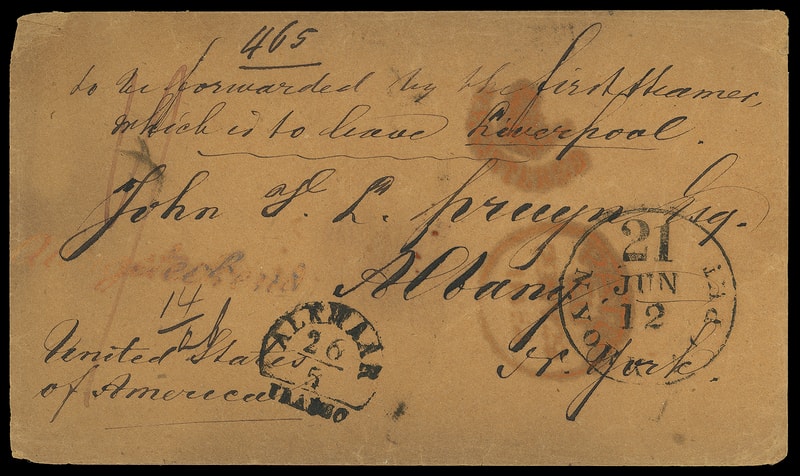 465
to be forwarded by the first steamer,
which is to leave Liverpool.
John V. L. Pruyn Esq.
Albany
N. York.
14
United States
of America
ALKMAAR
26
5
FRANCO
21
JUN
12
N. YORK